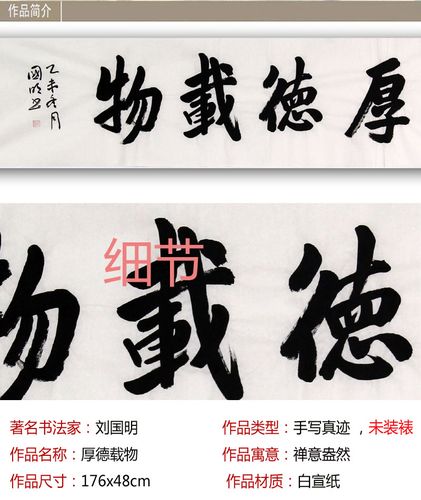 作品简介
厚德載物
乙未冬月
國明書
物載德
细节
著名书法家：刘国明
作品类型：手写真迹，未装裱
作品名称：厚德载物
作品寓意：禅意盎然
作品尺寸：176x48cm
作品材质：白宣纸